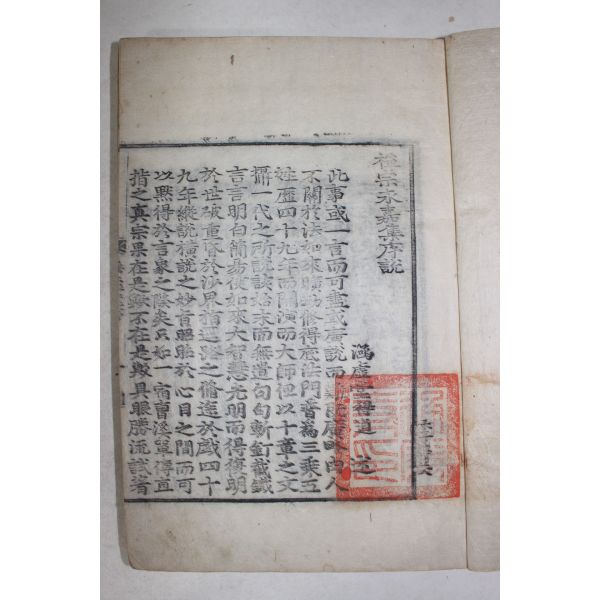 禪宗永嘉集序說
涵虛堂得通 述
此事或一言而可盡或廣說而難
不關於法如來曠劫修得底法門普爲三乘五
姓歷四十九年而開演而大師但以十章之文
攝一代之所說該始末而無遺句句斬釘截鐵
言言明白簡易使如來大智慧光明而得復明
於世破重昏於沙界指迷途之倫迬於戲四十
九年縱說橫說之妙旨昭昭於心目之間而可
以默得於言象之陰矣只如一宿曹溪單得直
指之眞宗果在是歟不在是歟具眼勝流試著